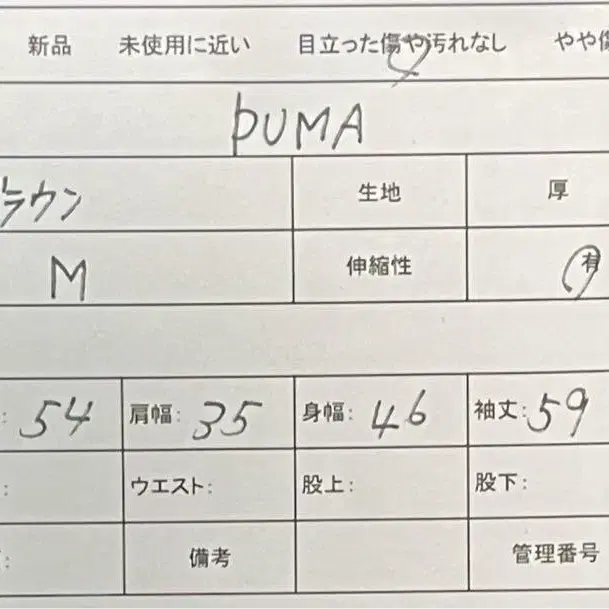 新品 未使用に近い 目立った傷や汚れなし やや傷
PUMA
ブラウン 生地 厚
M 伸縮性 有
: 54 肩幅: 35 身幅: 46 袖丈: 59
: ウエスト: 股上: 股下:
: 備考 管理番号